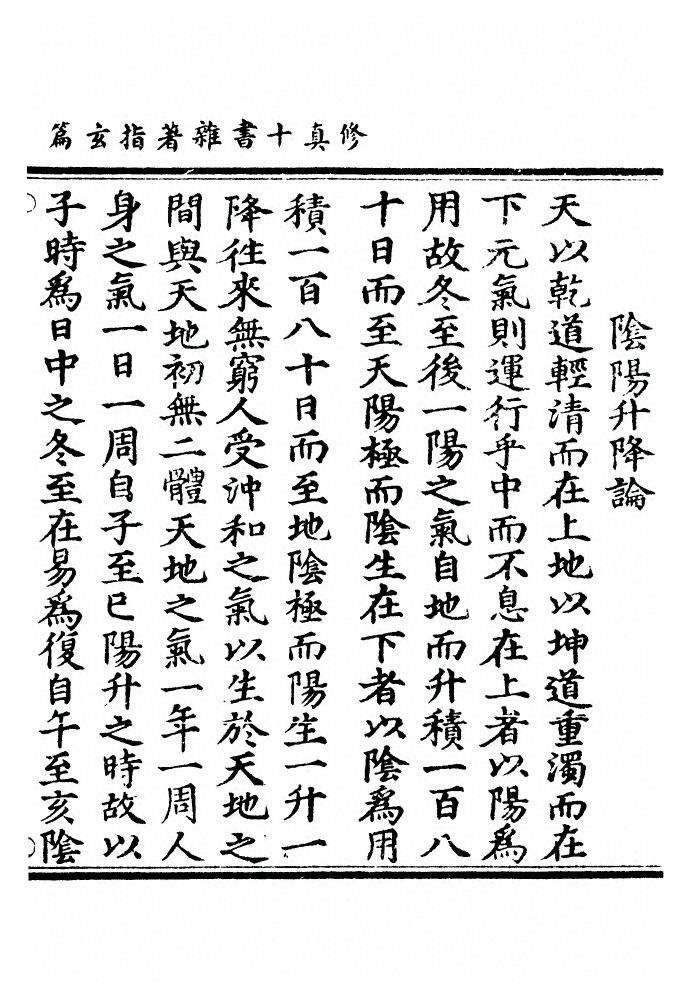 修真十書雜著指玄篇
陰陽升降論
天以乾道輕清而在上地以坤道重濁而在
下元氣則運行乎中而不息在上者以陽爲
用故冬至後一陽之氣自地而升積一百八
十日而至天陽極而陰生在下者以陰爲用
積一百八十日而至地陰極而陽生一升一
降徃來無窮人受沖和之氣以生於天地之
間與天地初無二體天地之氣一年一周人
身之氣一日一周自子至巳陽升之時故以
子時爲日中之冬至在易爲復自午至亥陰